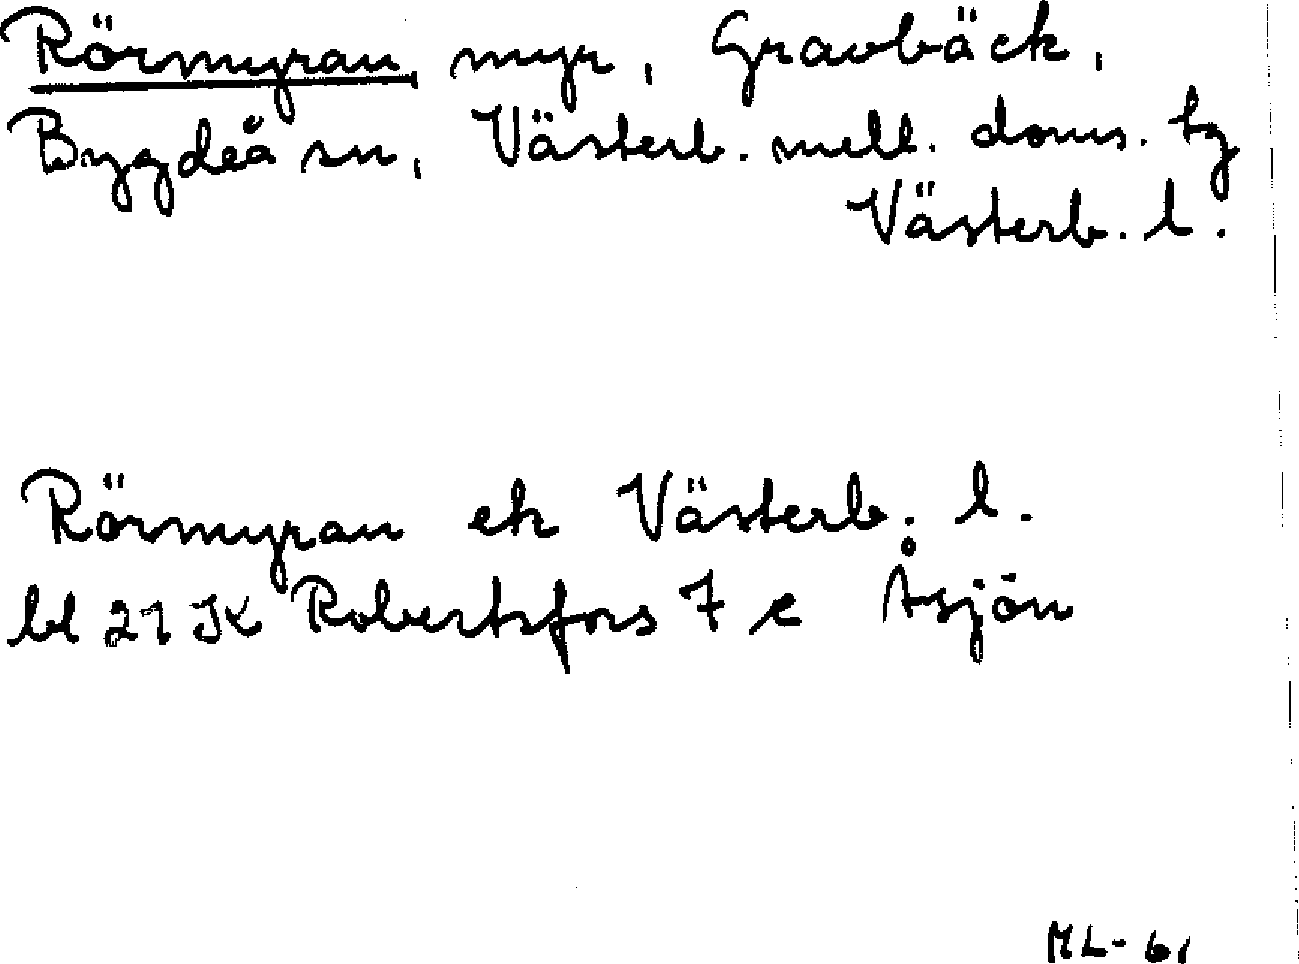 Rörmyran, myr, Gravbäck,
Bygdeå sn, Västerb. mell. doms. tg
Västerb. l.
Rörmyran ek Västerb. l.
bl 21 JK Robertsfors 7 e Åsjön
ML-61